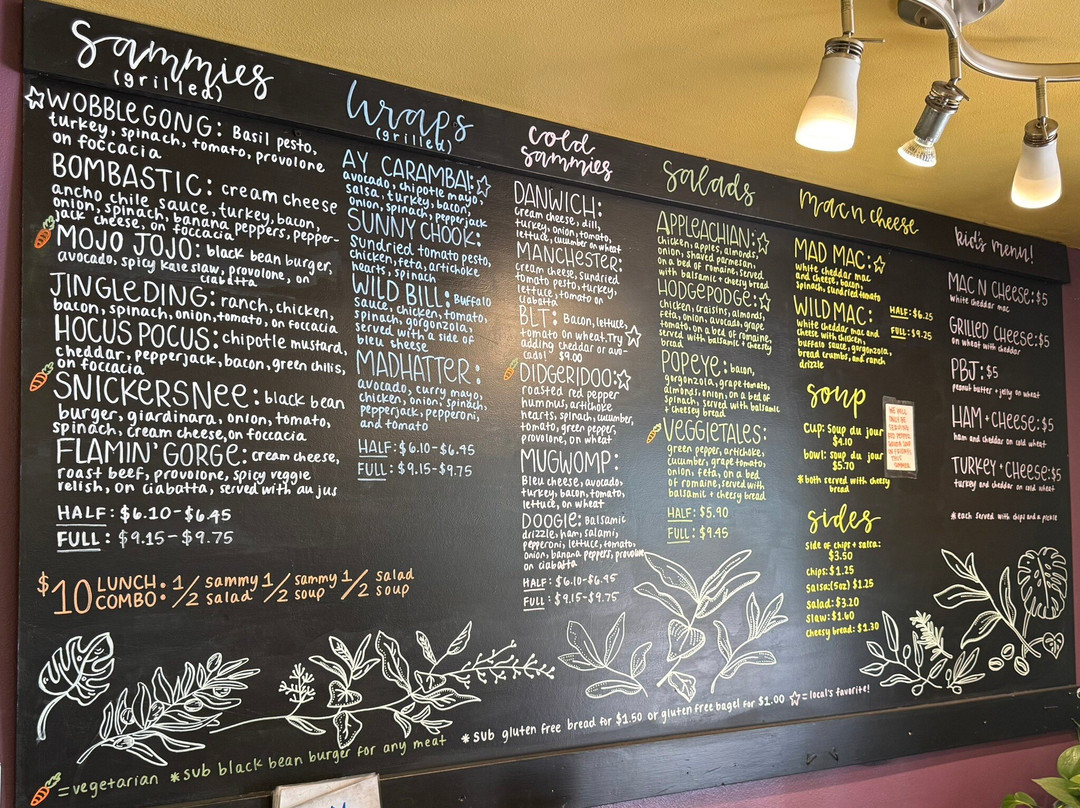 Sammies
(grilled)
WOBBLEGONG: Basil pesto,
turkey, spinach, tomato, provolone
on foccacia
BOMBASTIC: cream cheese
ancho chile sauce, turkey, bacon,
onion, spinach, banana peppers, pepper-
jack cheese, on foccacia
MOJO JOJO: black bean burger,
avocado, spicy kale slaw, provolone, on
ciabatta
JINGLEDING: ranch, chicken,
bacon, spinach, onion, tomato, on foccacia
HOCUS POCUS: chipotle mustard,
cheddar, pepperjack, bacon, green chilis,
on foccacia
SNICKERSNEE: black bean
burger, giardinara, onion, tomato,
spinach, cream cheese, on foccacia
FLAMIN' GORGE: cream cheese,
roast beef, provolone, spicy veggie
relish, on ciabatta, served with au jus
HALF: $6.10-$6.45
FULL: $9.15-$9.75
$10 LUNCH COMBO: 1/2 sammy 1/2 salad 1/2 sammy 1/2 soup 1/2 salad 1/2 soup
Wraps
(grilled)
AY CARAMBA!:
avocado, chipotle mayo,
salsa, turkey, bacon,
onion, spinach, pepperjack
SUNNY CHOOK:
Sundried tomato pesto,
chicken, feta, artichoke
hearts, spinach
WILD BILL: Buffalo
sauce, chicken, tomato,
spinach, gorgonzola,
served with a side of
bleu cheese
MADHATTER:
avocado, curry mayo,
chicken, onion, spinach,
pepperjack, pepperoni
and tomato
HALF: $6.10-$6.45
FULL: $9.15-$9.75
cold
sammies
DANWICH:
cream cheese, dill,
turkey, onion, tomato,
lettuce, cucumber on wheat
MANCHESTER:
cream cheese, sundried
tomato pesto, turkey,
lettuce, tomato on
ciabatta
BLT: Bacon, lettuce,
tomato on wheat. Try
adding cheddar or avo-
cado! $9.00
DIDGERIDOO:
roasted red pepper
hummus, artichoke
hearts, spinach, cucumber,
tomato, green pepper,
provolone, on wheat
MUGWOMP:
Bleu cheese, avocado,
turkey, bacon, tomato,
lettuce, on wheat
DOOGIE: Balsamic
drizzle, ham, salami,
pepperoni, lettuce, tomato,
onion, banana peppers, provolone
on ciabatta
HALF: $6.10-$6.95
FULL: $9.15-$9.75
Salads
APPLEACHIAN:
chicken, apples, almonds,
onion, shaved parmesan,
on a bed of romaine, served
with balsamic + cheesy bread
HODGEPODGE:
chicken, craisins, almonds,
feta, onion, avocado, grape
tomato, on a bed of romaine,
served with balsamic + cheesy
bread
POPEYE: bacon,
gorgonzola, grape tomato,
almonds, onion, on a bed of
spinach, served with balsamic
+ cheesy bread
VEGGIETALES:
green pepper, artichoke,
cucumber, grape tomato,
onion, feta, on a bed
of romaine, served with
balsamic + cheesy bread
HALF: $5.90
FULL: $9.45
mac n cheese
MAD MAC:
white cheddar mac
and cheese, bacon,
spinach, sundried tomato
WILD MAC:
white cheddar mac and
cheese with chicken,
buffalo sauce, gorgonzola,
bread crumbs, and ranch
drizzle
HALF: $6.25
FULL: $9.25
soup
Cup: soup du jour
$4.10
bowl: soup du jour
$5.70
*both served with cheesy
bread
WE WILL
ONLY BE
SERVING
SOUP
THIS
SUMMER
sides
side of chips + salsa:
$3.50
chips: $1.25
salsa: (5oz) $1.25
salad: $3.20
slaw: $1.60
cheesy bread: $1.30
kid's menu!
MAC N CHEESE: $5
white cheddar mac
GRILLED CHEESE: $5
on wheat with cheddar
PBJ: $5
peanut butter + jelly on wheat
HAM + CHEESE: $5
ham and cheddar on cold wheat
TURKEY + CHEESE: $5
turkey and cheddar on cold wheat
*each served with chips and a pickle
= vegetarian *sub black bean burger for any meat *sub gluten free bread for $1.50 or gluten free bagel for $1.00 = local's favorite!